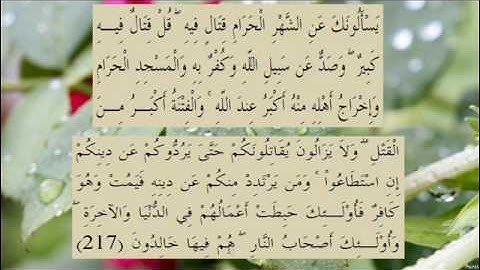 يَسْأَلُونَكَ عَنِ الشَّهْرِ الْحَرَامِ قِتَالٍ فِيهِ ۖ قُلْ قِتَالٌ فِيهِ
كَبِيرٌ ۖ وَصَدٌّ عَن سَبِيلِ اللّه وَكُفْرٌ بِهِ وَالْمَسْجِدِ الْحَرَامِ
وَإِخْرَاجُ أَهْلِهِ مِنْهُ أَكْبَرُ عِندَ اللّهِ ۚ وَالْفِتْنَةُ أَكْبَرُ مِنَ
الْقَتْلِ ۗ وَلاَ يَزَالُونَ يُقَاتِلُونَكُمْ حَتَّىَ يَرُدُّوكُمْ عَن دِينِكُمْ
إِنِ اسْتَطَاعُوا ۚ وَمَن يَرْتَدِدْ مِنكُمْ عَن دِينِهِ فَيَمُتْ وَهُوَ
كَافِرٌ فَأُوْلَـئِكَ حَبِطَتْ أَعْمَالُهُمْ فِي الدُّنْيَا وَالآخِرَةِ ۖ
وَأُوْلَـئِكَ أَصْحَابُ النَّارِ ۖ هُمْ فِيهَا خَالِدُونَ (217)